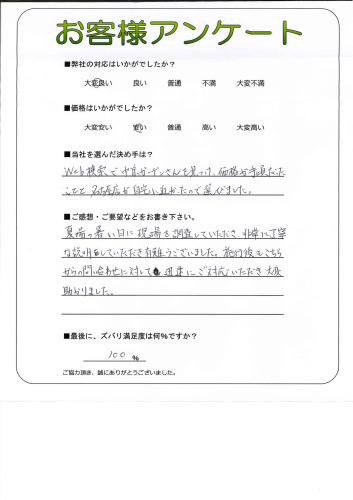 お客様アンケート
■弊社の対応はいかがでしたか？
大変良い 良い 普通 不満 大変不満
■価格はいかがでしたか？
大変安い 安い 普通 高い 大変高い
■当社を選んだ決め手は？
Web検索で さんを見つけ、価格が手頃だった
ことと 名古屋店が自宅に近かったので選びました。
■ご感想・ご要望などをお書き下さい。
夏場の暑い日に現場を調査していただき、非常に丁寧
な説明をしていただき有難うございました。施行後もこちら
からの問い合わせに対しても迅速にご対応いただき大変
助かりました。
■最後に、ズバリ満足度は何％ですか？
100 %
ご協力頂き、誠にありがとうございました。